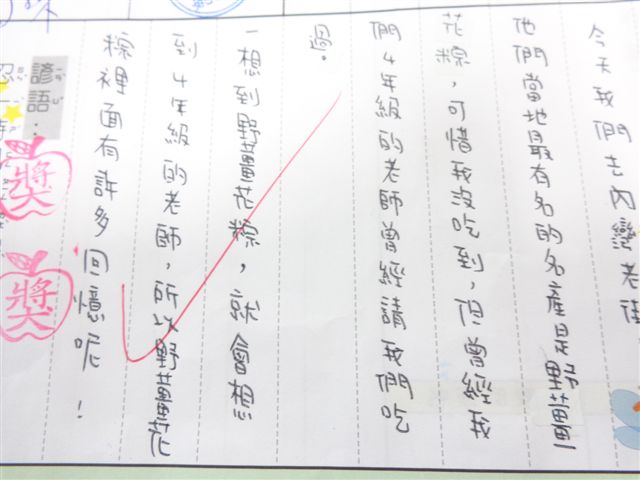 今天我們去內灣老街
他們當地最有名的名產是野薑
花粽，可惜我沒吃到，但曾經我
們4年級的老師曾經請我們吃
過。
一想到野薑花粽，就會想
到4年級的老師，所以野薑花
粽裡面有許多回憶呢！
諺語：
忍一時
獎
獎